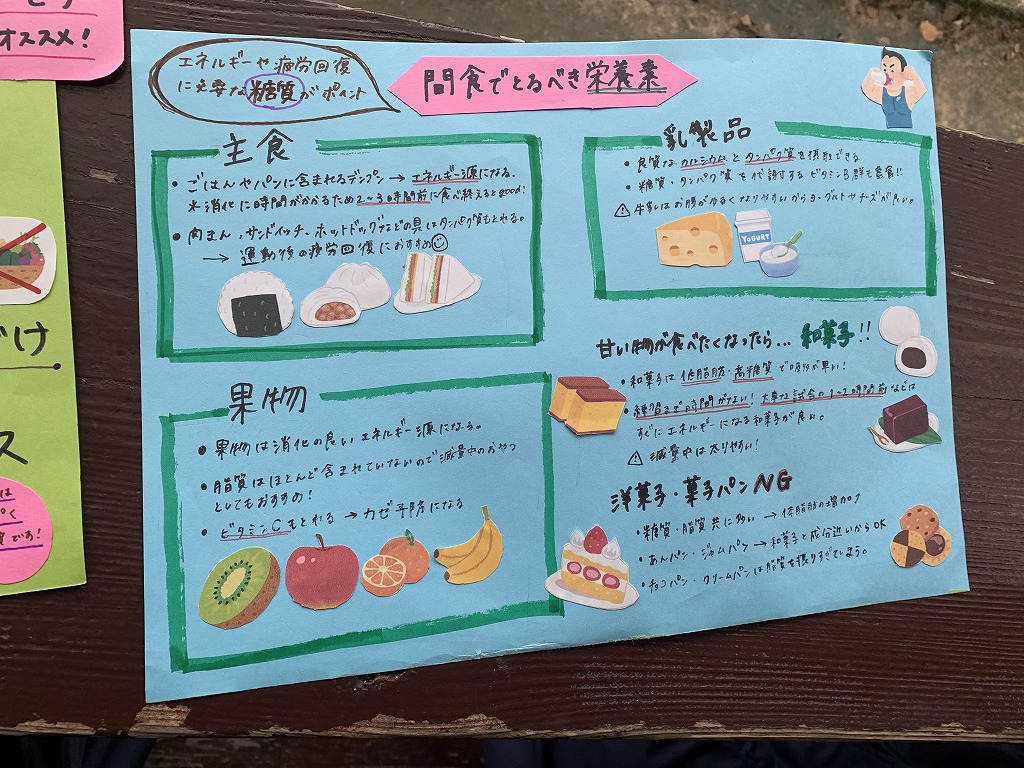 オススメ!
エネルギーや疲労回復
に必要な糖質がポイント
間食でとるべき栄養素
主食
・ごはんやパンに含まれるデンプン→エネルギー源になる。
※消化に時間がかかるため2~3時間前に食べ終えるとgood!
・肉まん、サンドイッチ、ホットドッグなどの具はタンパク質もとれる。
→運動後の疲労回復におすすめ
果物
・果物は消化の良いエネルギー源になる。
・脂質はほとんど含まれていないので減量中のおやつ
としてもおすすめ!
・ビタミンCもとれる→カゼ予防になる
乳製品
・良質なカルシウムとタンパク質を摂取できる
・糖質・タンパク質を代謝するビタミンB群も豊富!!
⚠牛乳はお腹がゆるくなりやすいからヨーグルトやチーズが良い。
YOGURT
甘い物が食べたくなったら...和菓子!!
・和菓子は低脂肪・高糖質で吸収が早い!
・練習まで時間がない!大事な試合の1~2時間前などは
すぐにエネルギーになる和菓子が良い。
⚠減量中は太りやすい!
洋菓子・菓子パンNG
・糖質・脂質共に多い→体脂肪の増加
・あんパン・ジャムパン→和菓子と成分近いからOK
・チョコパン・クリームパンは脂質を摂りすぎてしまう。
け
ス
は
く
です!